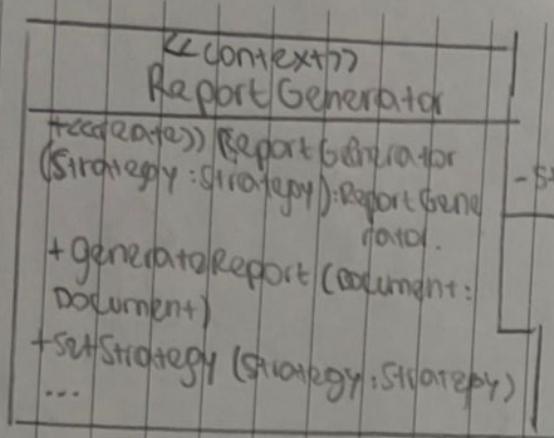 <<context>>
ReportGenerator
+<<create>> ReportGenerator
(Strategy:Strategy):ReportGene
rator.
+generateReport(Document:
Document)
+setStrategy (Strategy:Strategy)
...